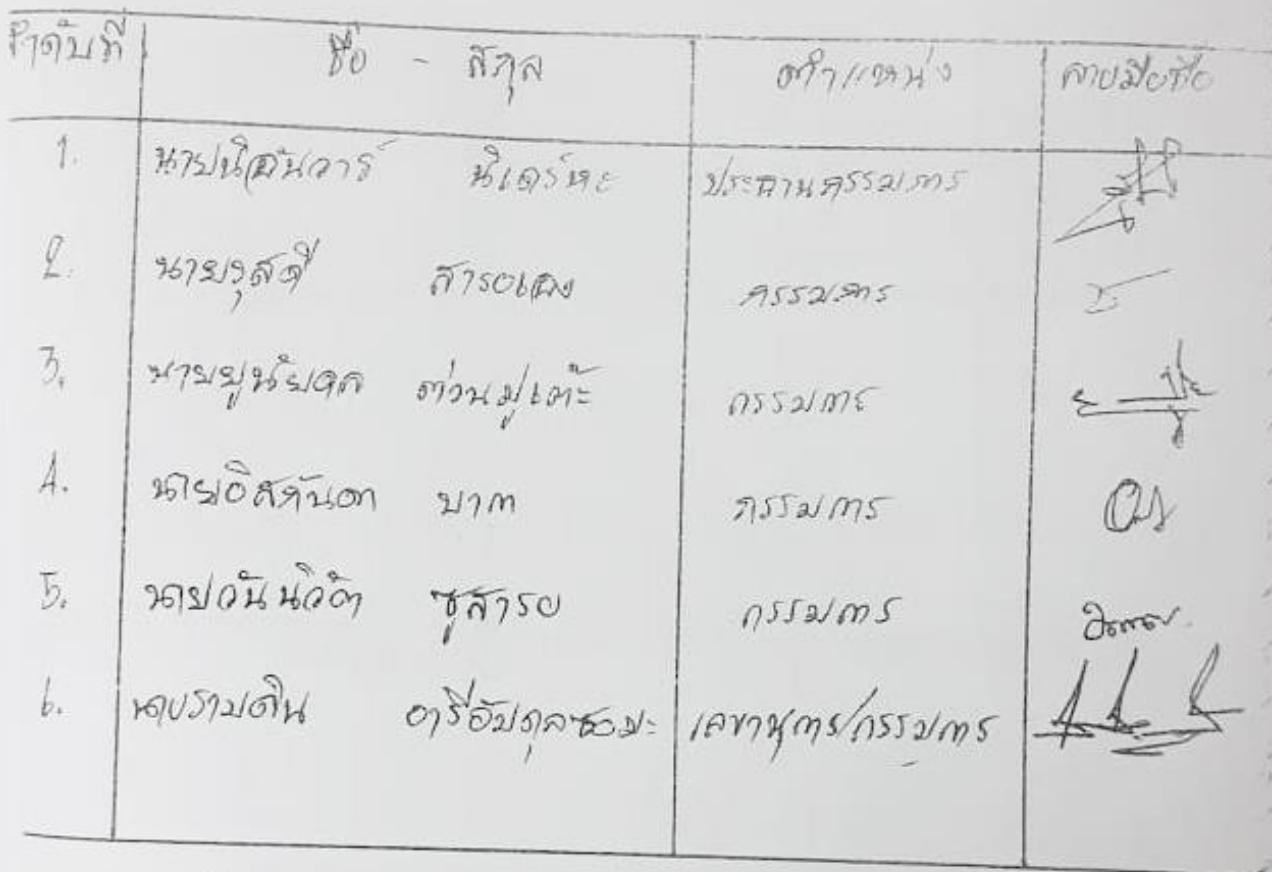 ลำดับที่ ชื่อ - สกุล ตำแหน่ง ลายมือชื่อ
1. นายนิอันวาร์ นิเดร์หะ ประธานกรรมการ
2. นายรุสดี สารอเอง กรรมการ
3. นายยูนัยดล ต่วนมูเต๊ะ กรรมการ
4. นายอิสกันดา บากา กรรมการ
5. นายวันนิวัต ซูสารอ กรรมการ
6. นายรามดิน อารีอับดุลซอมะ เลขานุการ/กรรมการ